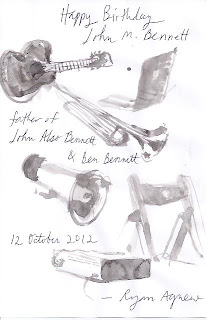 Happy Birthday
John M. Bennett
father of
John Also Bennett
& Ben Bennett
12 October 2012
— Ryan Agnew